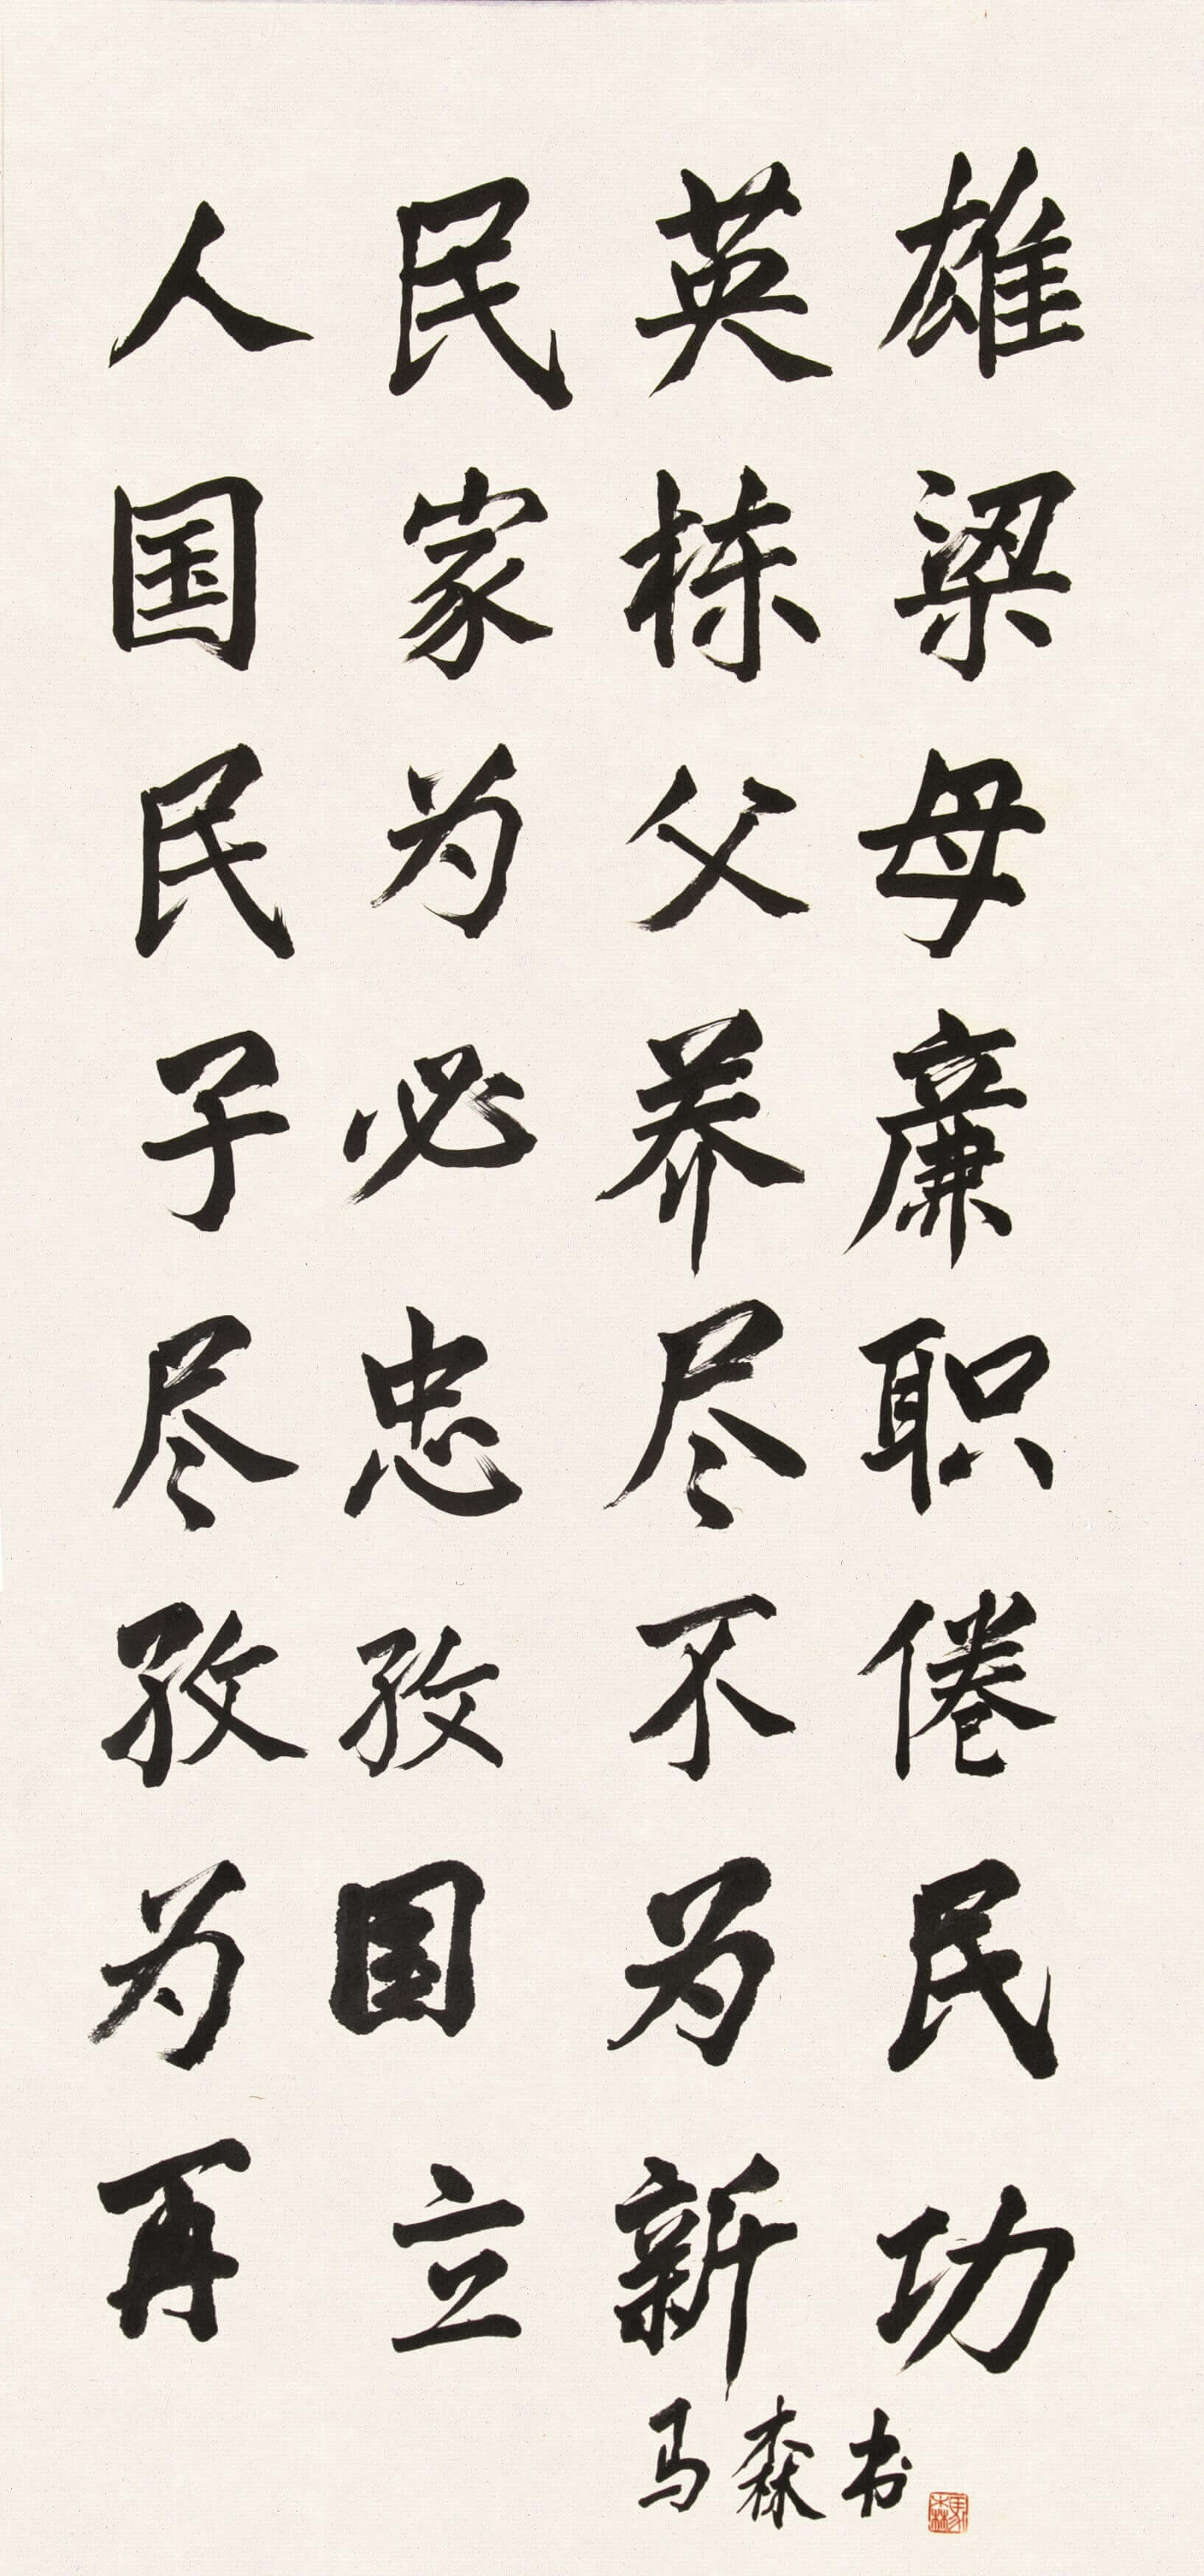 人民英雄
国家栋梁
民为父母
子必养廉
尽忠尽职
孜孜不倦
为国为民
再立新功
马森书
馬森